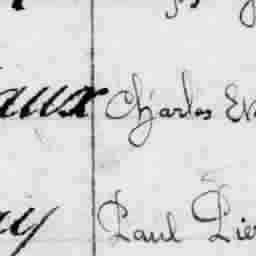 aux Charles Ev
ay Paul Pier